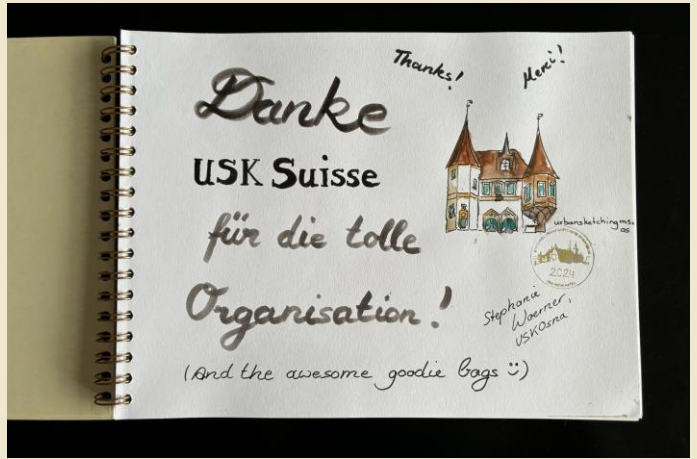 Thanks!
Merci!
Danke
USK Suisse
für die tolle
Organisation!
urbansketchingms.
os
2024
Stephanie
Woerner,
USKOsna
(And the awesome goodie bags :))